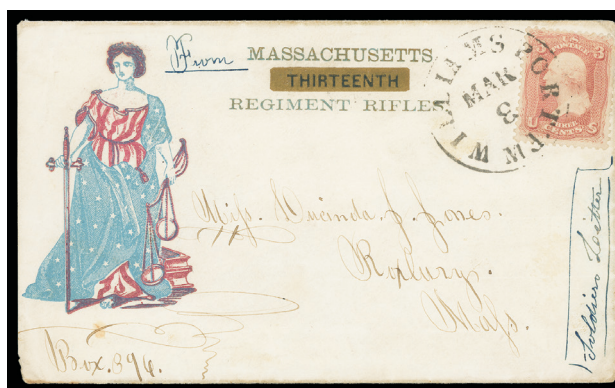 From
MASSACHUSETTS
THIRTEENTH
REGIMENT RIFLES
WILLIAMSPORT MD
MAR
8
U.S. POSTAGE
THREE CENTS
Miss. Lucinda J. Jones.
Roxbury.
Mass.
Box. 896.
Soldiers Letter